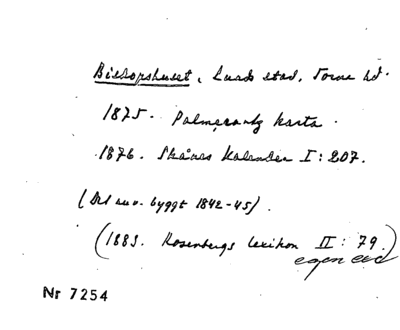 Biskopshuset, Lunds stad, Torna hd.
1875. Palmcrantz karta.
1876. Skånes Kalender I: 207.
(Det nuv. byggt 1842-45).
(1883. Rosenbergs lexikon II: 79.)
egen
Nr 7254